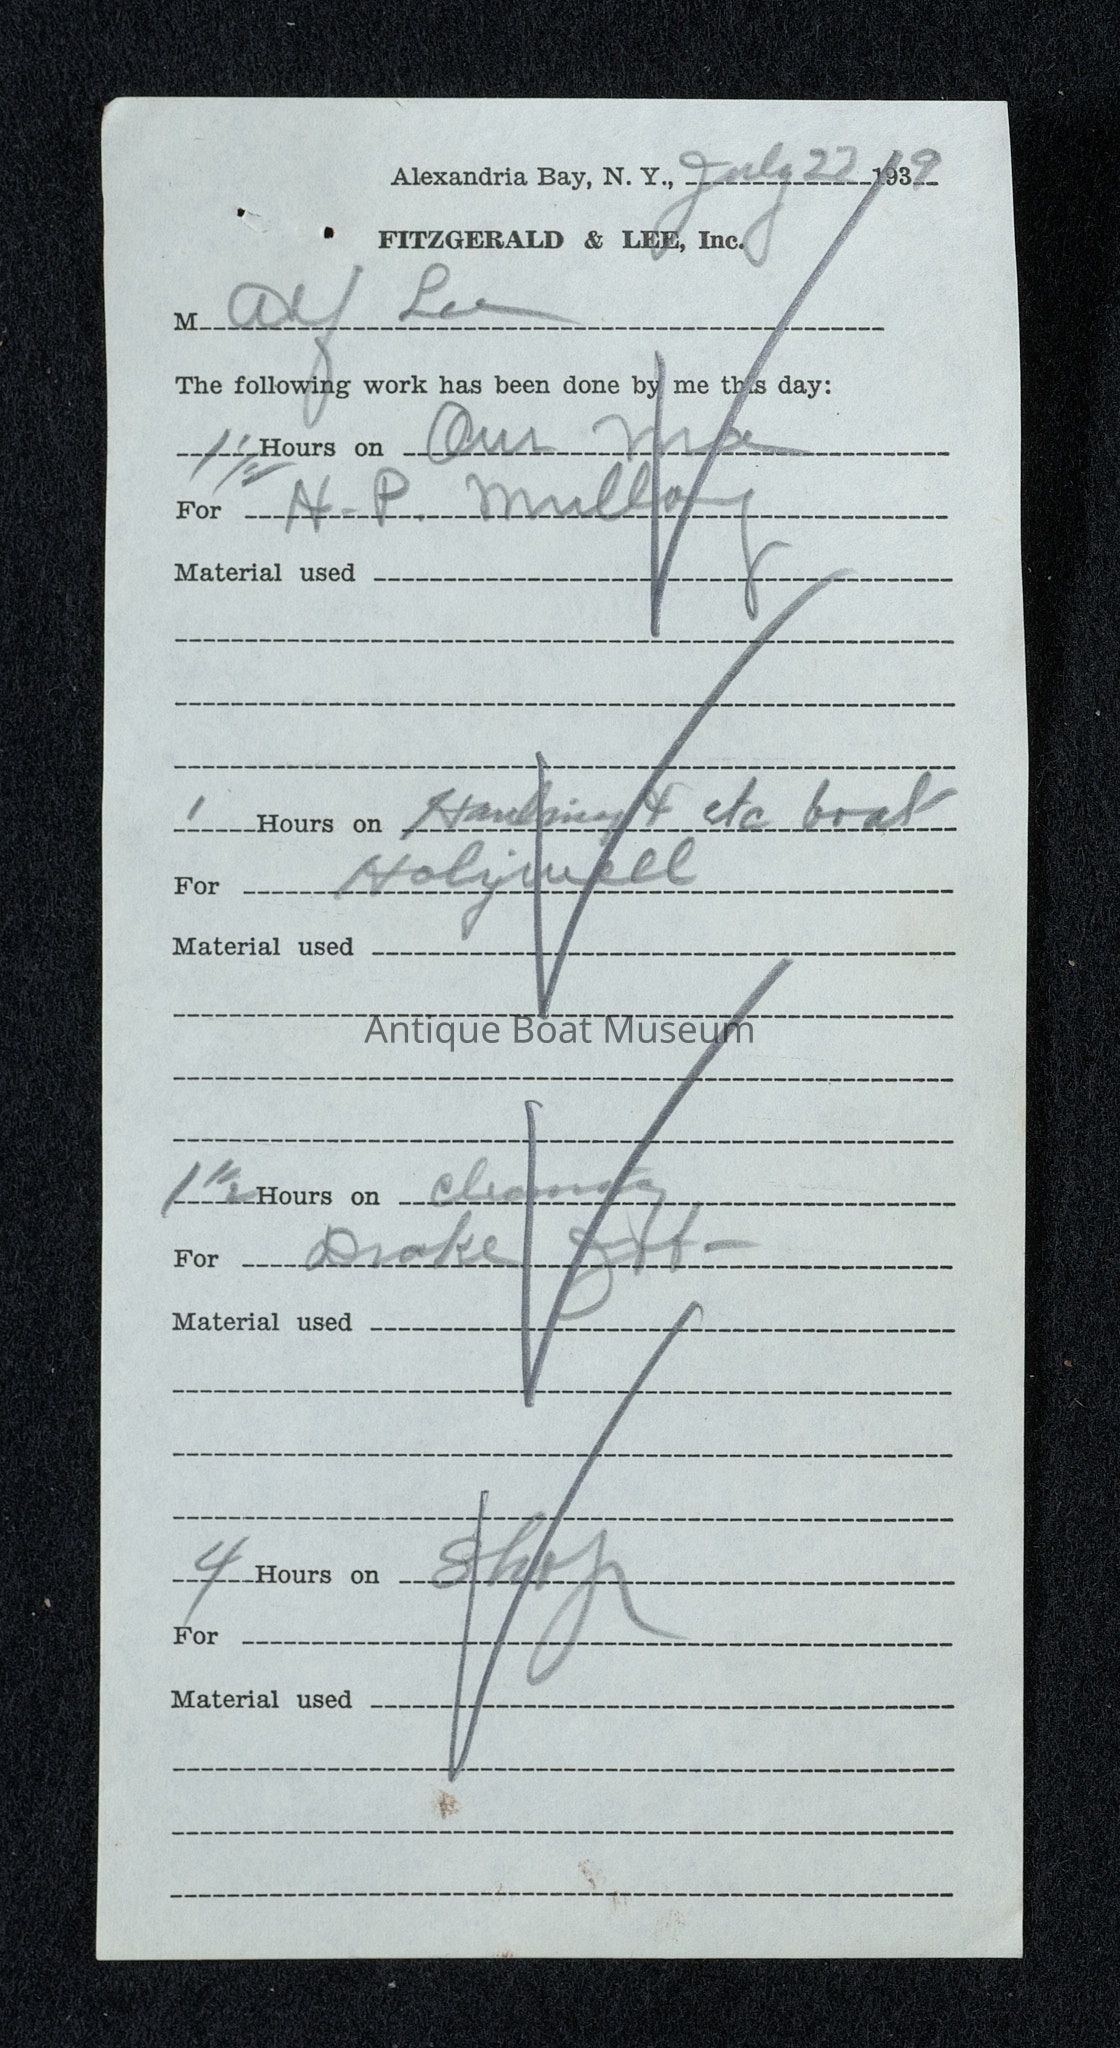 Alexandria Bay, N. Y., July 22 1939
FITZGERALD & LEE, Inc.
M Alf Lee
The following work has been done by me this day:
1 1/2 Hours on Our Ma
For H-P. Mulloy
Material used
1 Hours on Hauling & etc boat
For Holywell
Material used
Antique Boat Museum
1 1/2 Hours on cleaning
For Drake
Material used
4 Hours on Shop
For
Material used